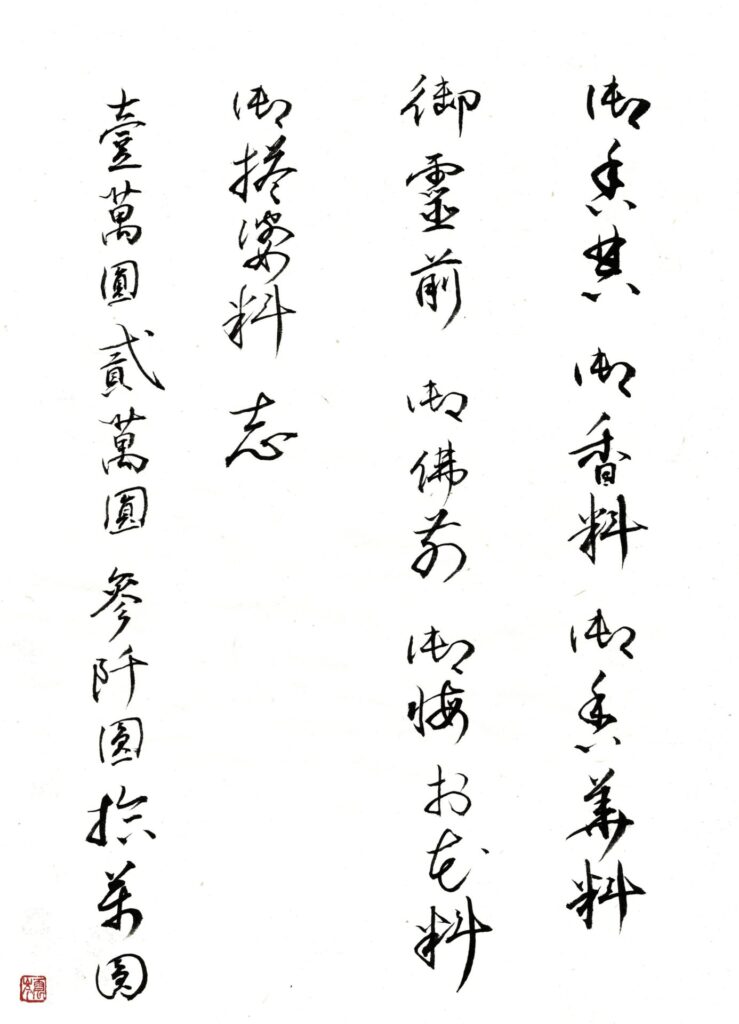 御香典 御香料 御香華料
御靈前 御佛前 御悔 お花料
御搭婆料 志
壹萬圓 貳萬圓 參阡圓 拾萬圓